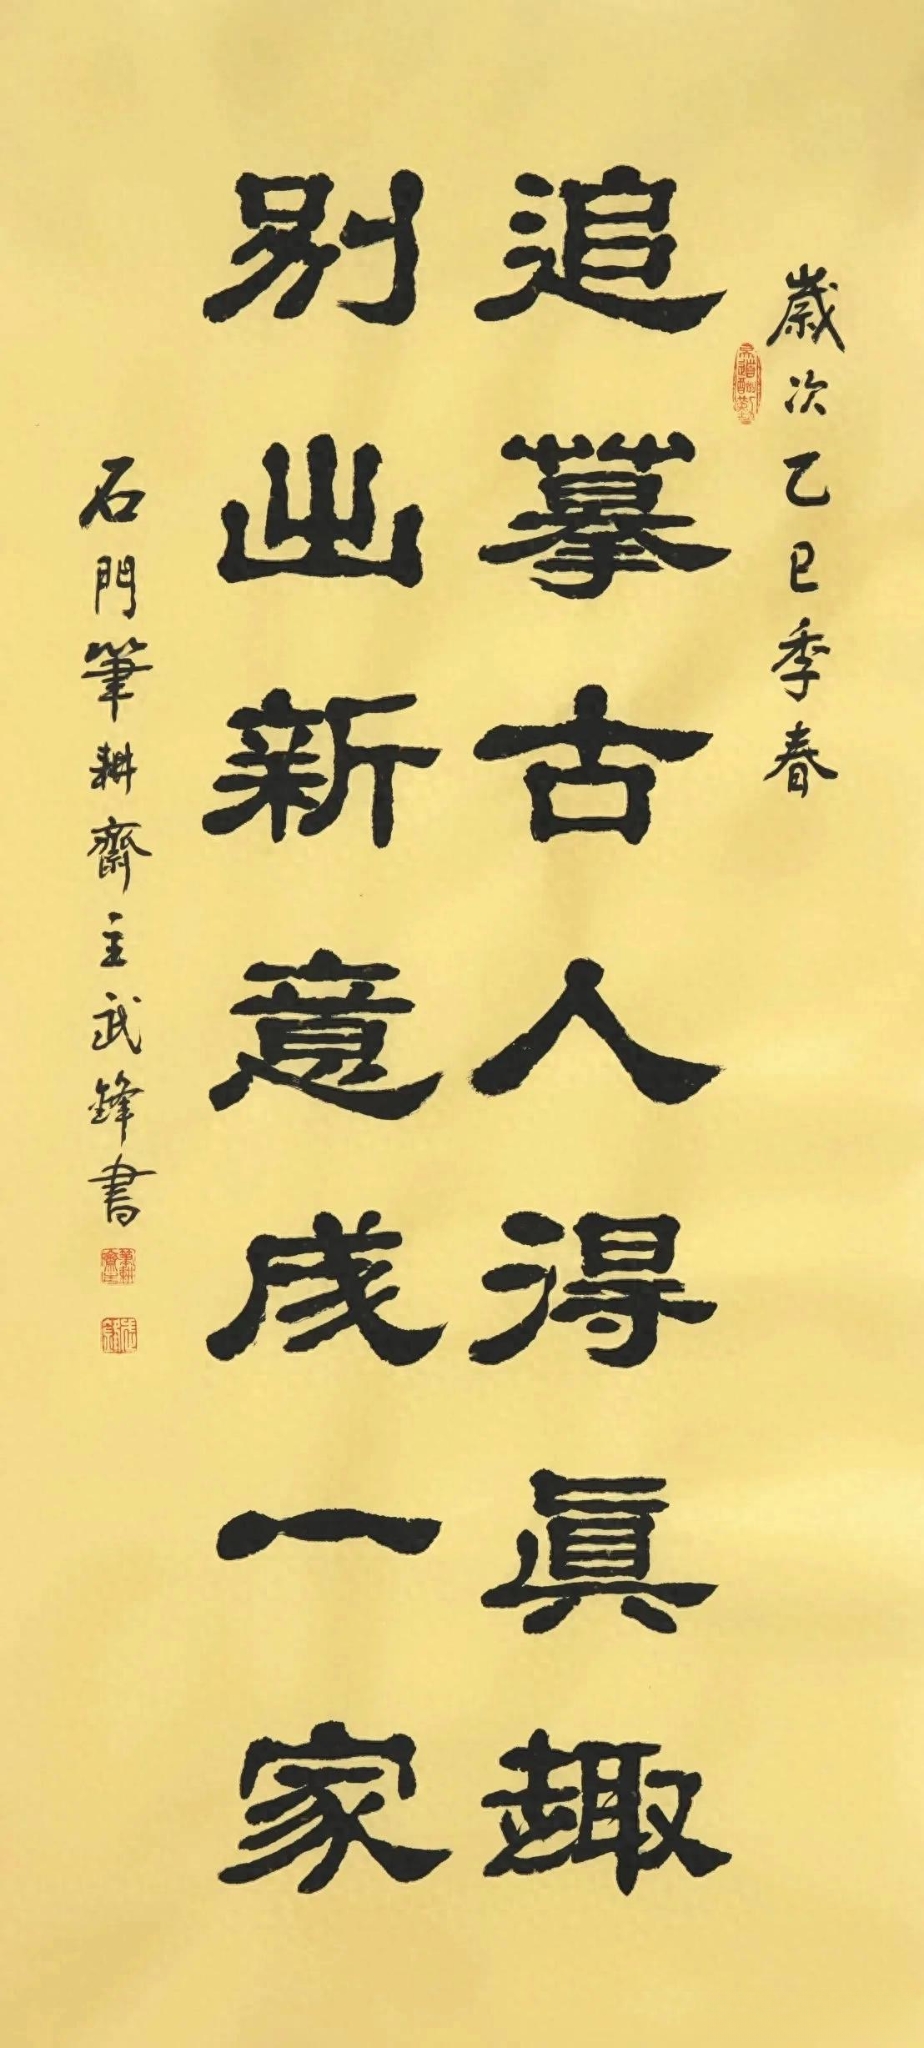 歲次乙巳季春
追摹古人得眞趣
别出新意成一家
石門筆耕齋主武鋒書